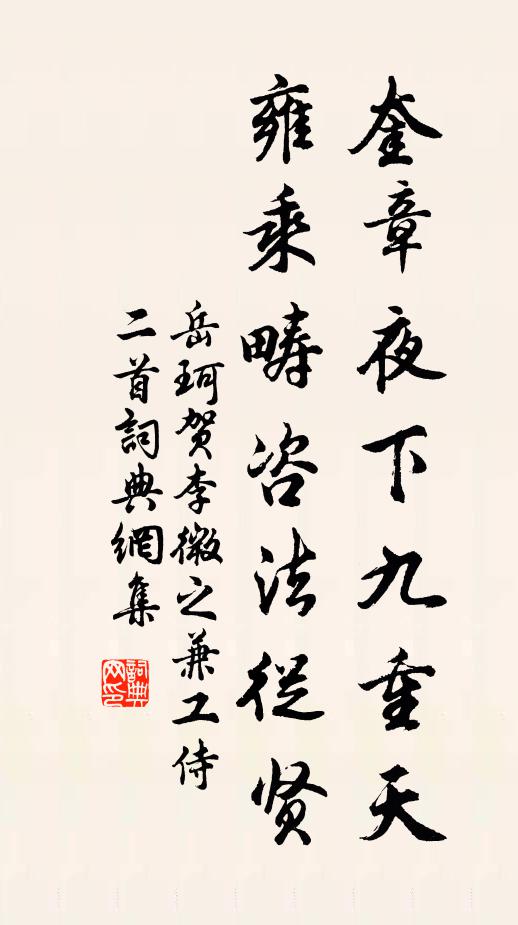 奎章夜下九重天
雍乘畴咨法從贤
岳珂贺李微之兼工侍
二首詞典網集
詞典网印